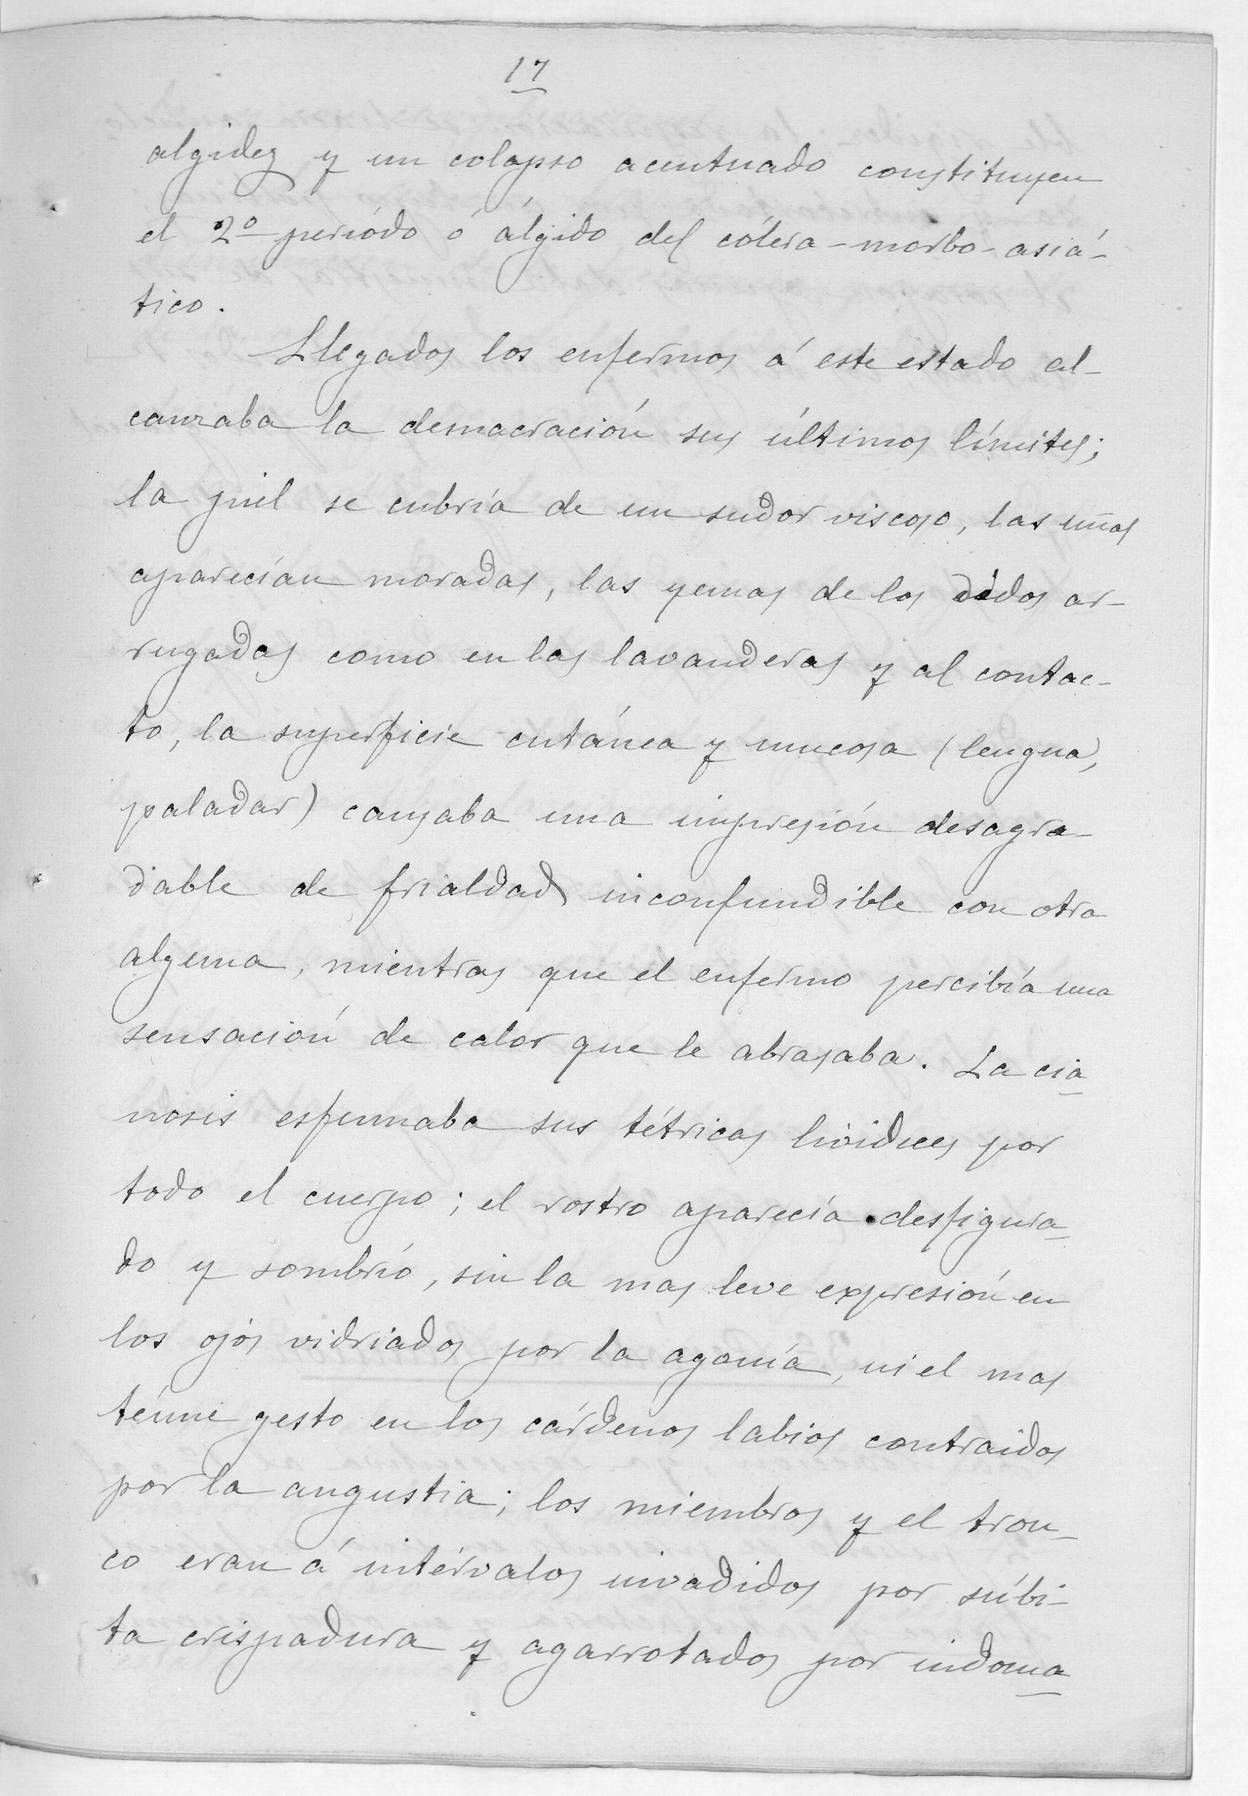 17
algidez y un colapso acentuado constituyen
el 2º período ó álgido del cólera-morbo-asiá-
tico.
Llegados los enfermos á este estado al-
canzaba la demacración sus últimos límites;
la piel se cubría de un sudor viscoso, las uñas
aparecían moradas, las yemas de los dedos ar-
rugadas como en las lavanderas y al contac-
to, la superficie cutánea y mucosa (lengua,
paladar) causaba una impresión desagra-
dable de frialdad inconfundible con otra
alguna, mientras que el enfermo percibía una
sensación de calor que le abrasaba. La cia
nosis esfumaba sus tétricas livideces por
todo el cuerpo; el rostro aparecía desfigura-
do y sombrío, sin la mas leve expresión en
los ojos vidriados por la agonía, ni el mas
ténue gesto en los cárdenos labios contraidos
por la angustia; los miembros y el tron-
co eran á intérvalos invadidos por súbi-
ta crispadura y agarrotados por indoma